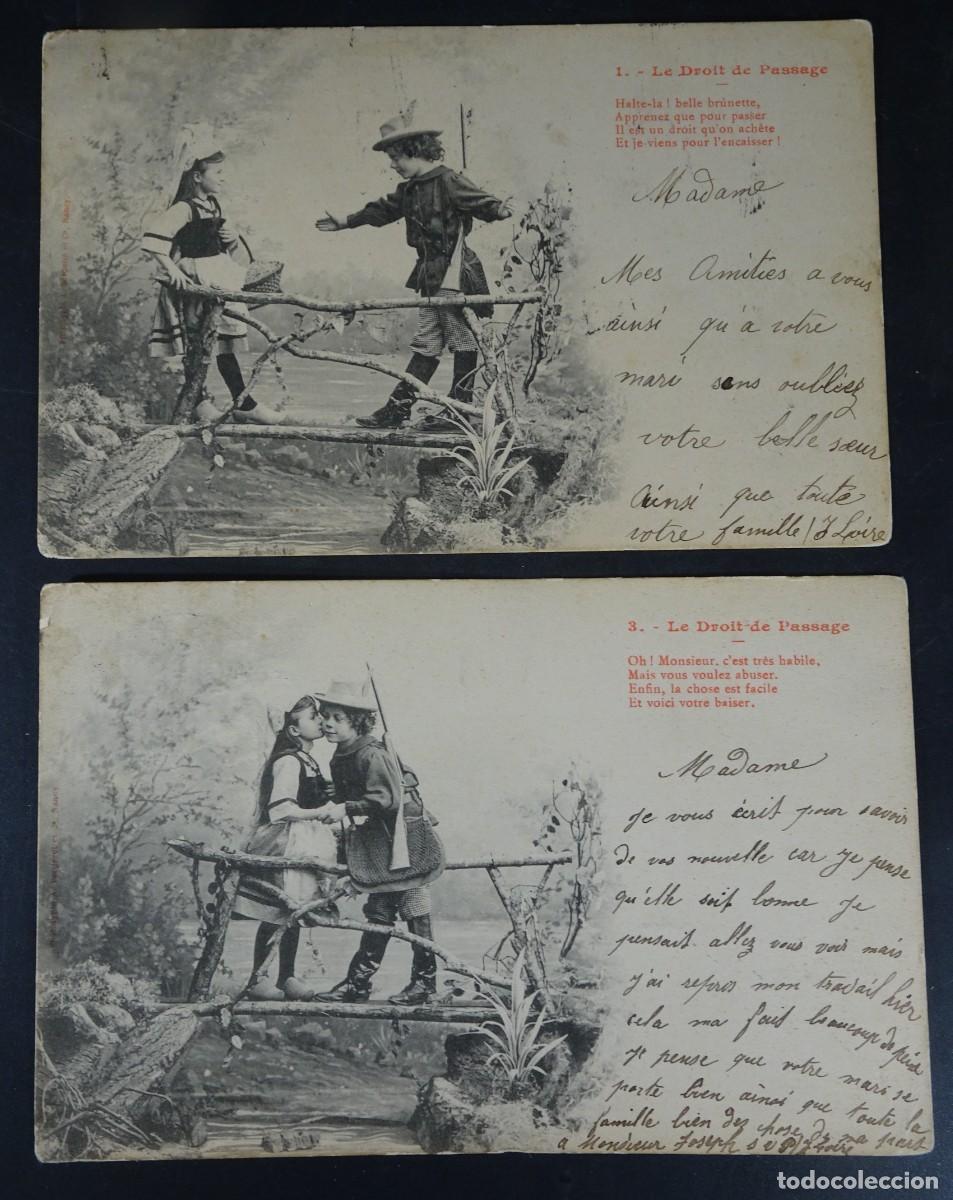 1. - Le Droit de Passage
Halte-la ! belle brûnette,
Apprenez que pour passer
Il est un droit qu'on achête
Et je viens pour l'encaisser !
Madame
Mes Amities a vous
ainsi qu'a votre
mari sans oubliez
votre belle sœur
Ainsi que toute
votre famille / J Loire
3. - Le Droit de Passage
Oh ! Monsieur, c'est très habile,
Mais vous voulez abuser.
Enfin, la chose est facile
Et voici votre baiser.
Madame
je vous écrit pour savoir
de vos nouvelle car Je pense
qu'elle soit bonne Je
pensait allez vous voir mais
j'ai repris mon travail hier
cela ma fait beaucoup de peine
Je pense que votre mari se
porte bien ainsi que toute la
famille bien des chose de ma part
a Monsieur Joseph Loire
todocoleccion